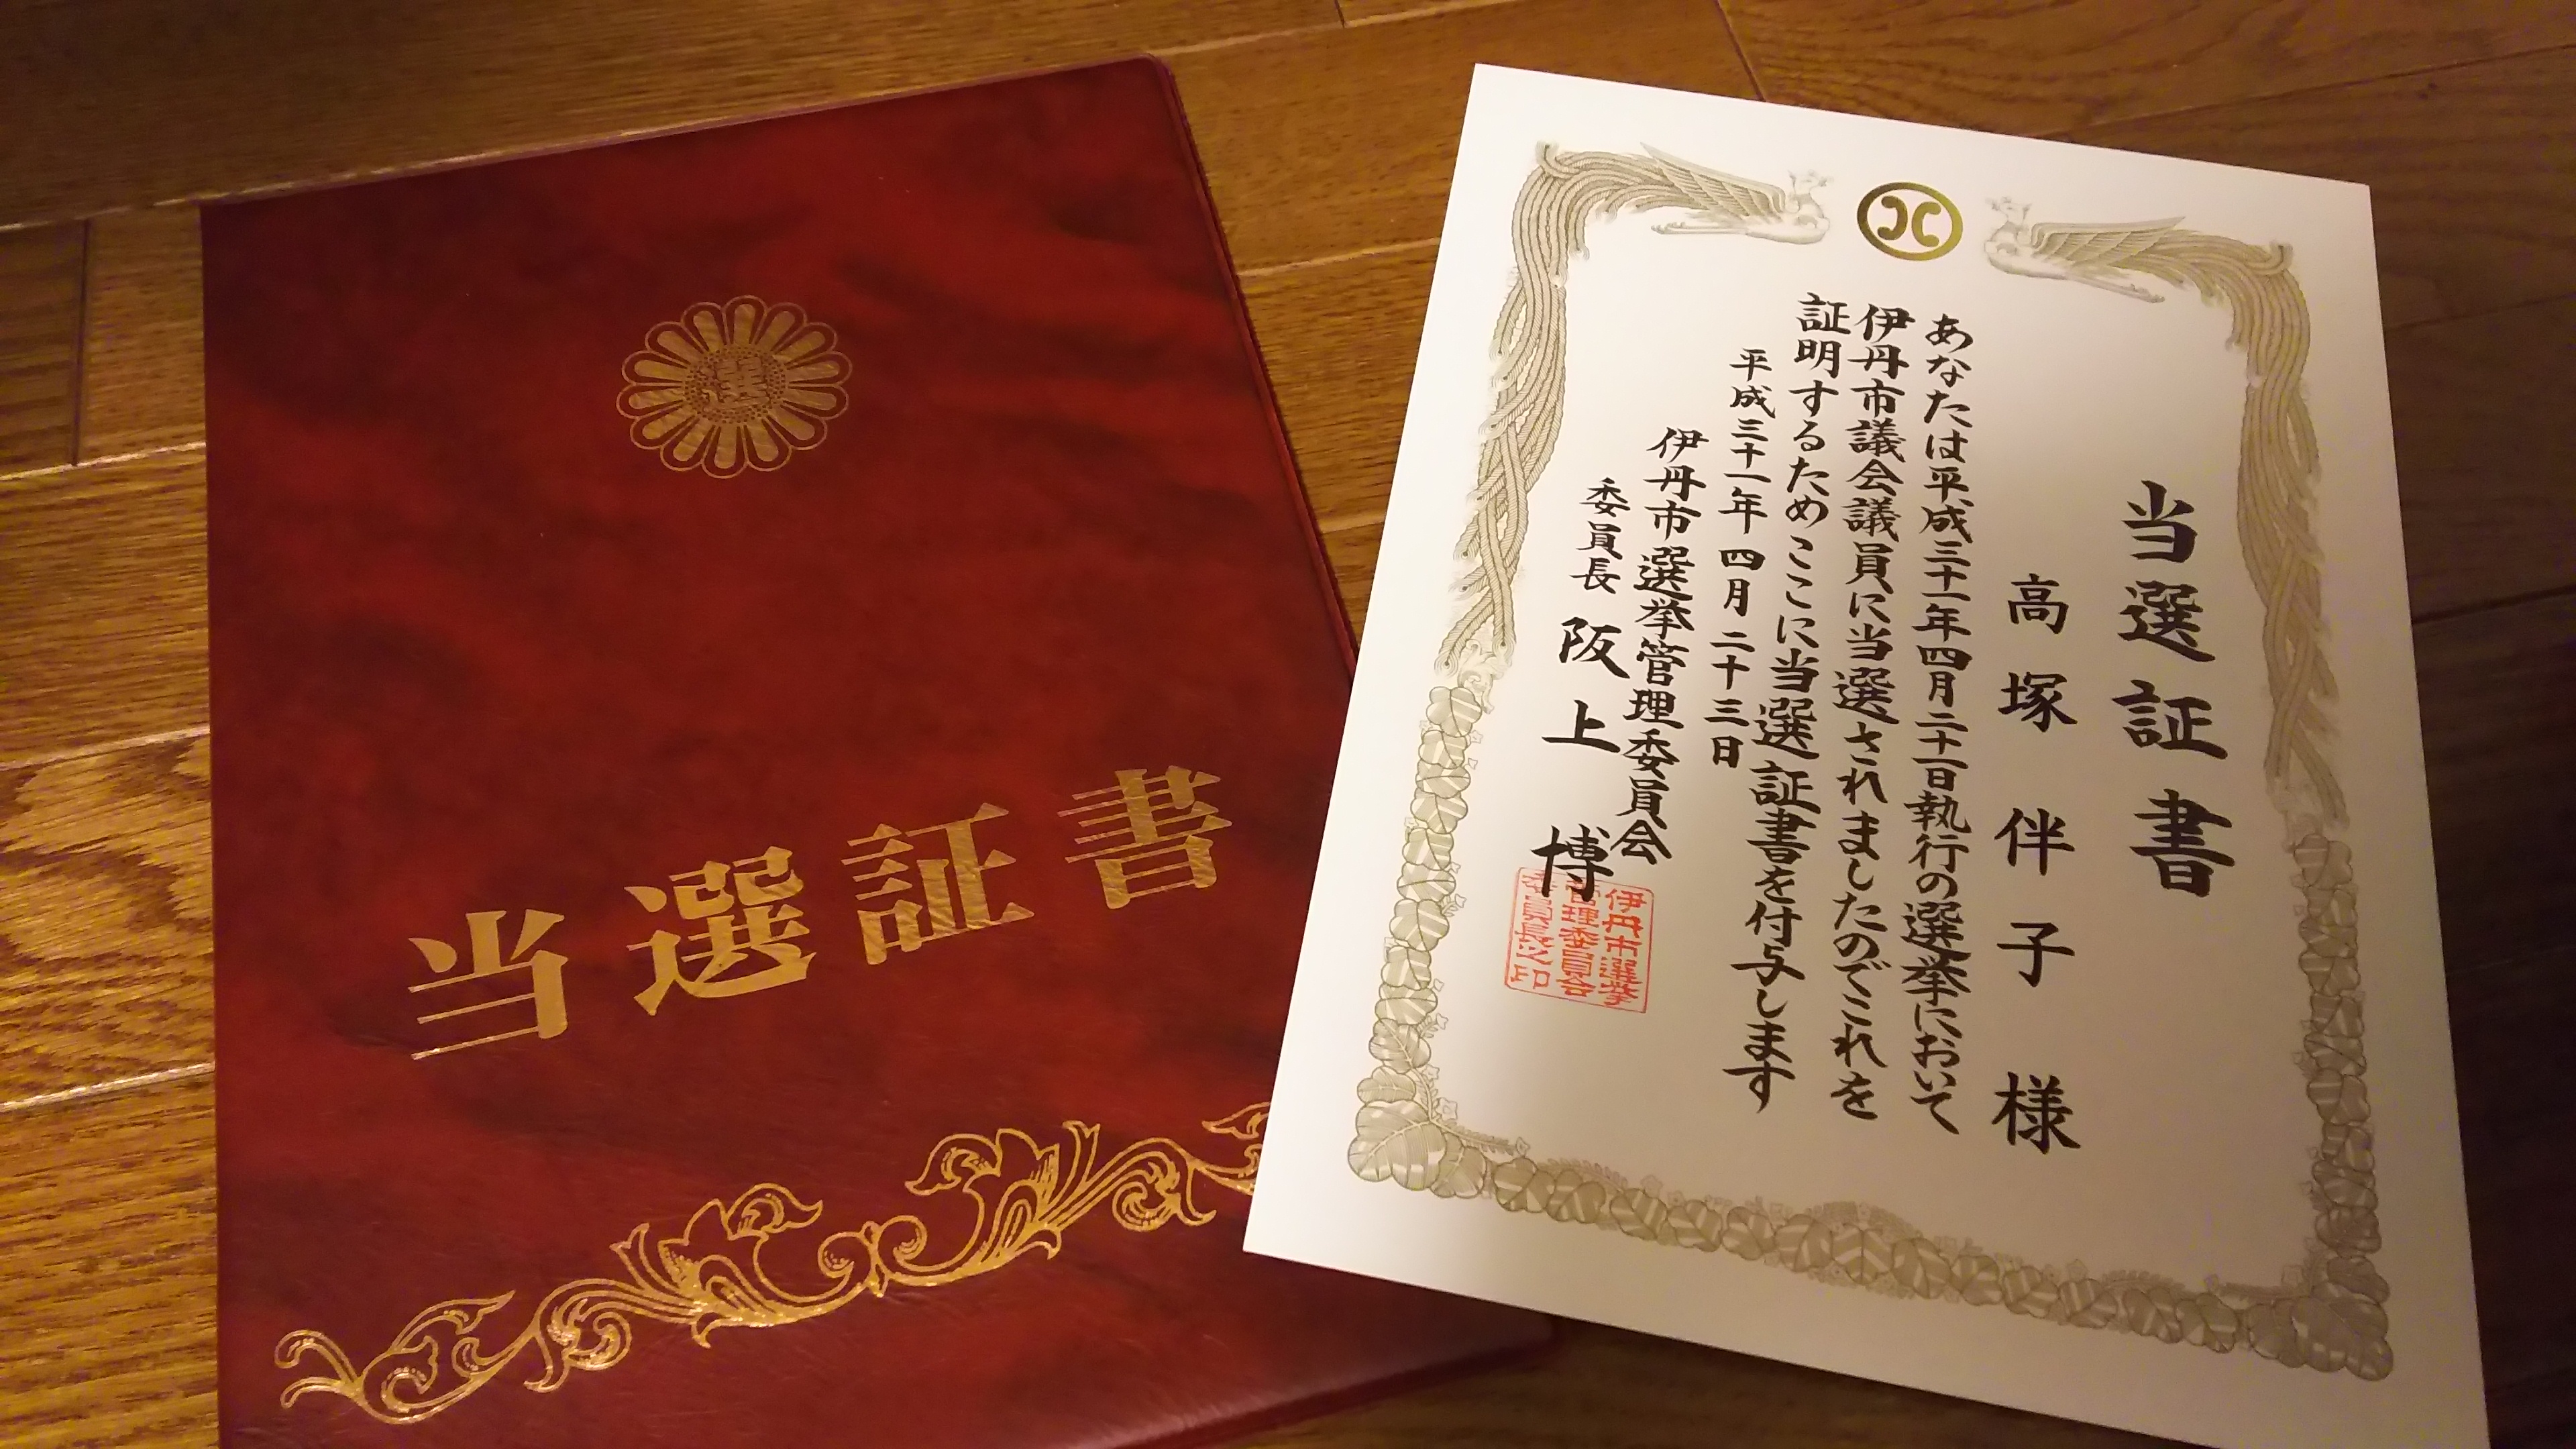 選
当選証書
当選証書
高塚伴子様
あなたは平成三十一年四月二十一日執行の選挙において
伊丹市議会議員に当選されましたのでこれを
証明するためここに当選証書を付与します
平成三十一年四月二十三日
伊丹市選挙管理委員会
委員長 阪上博
伊丹市選挙
管理委員会
委員長之印